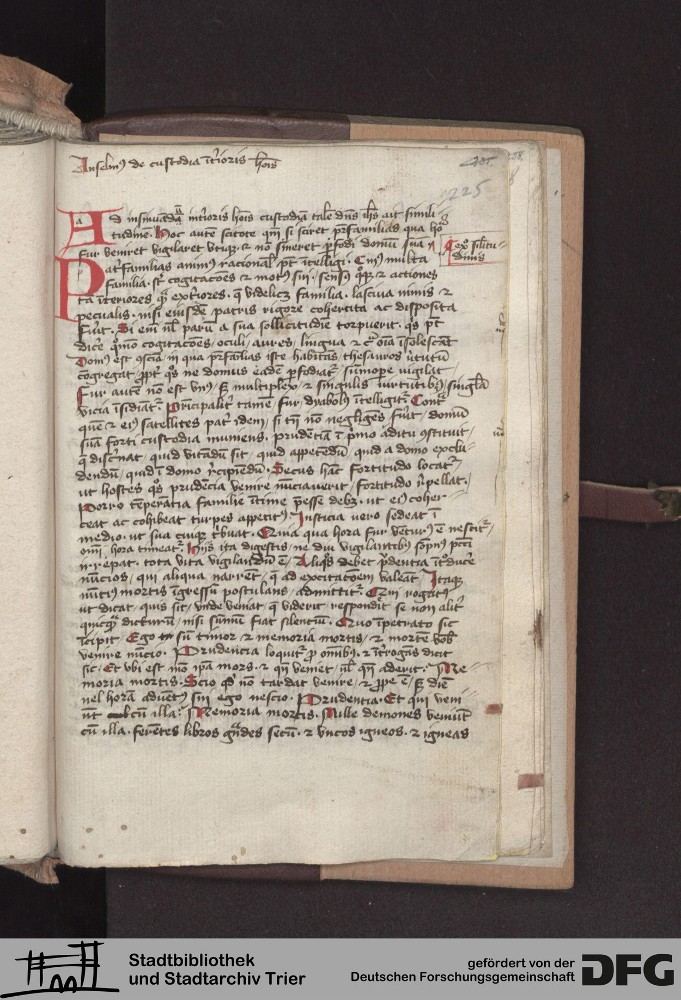 Anselmus de custodia interioris hominis
225
Ad insinuandam interioris hominis custodiam talem dominus ihesus ait simili
tudinem. Hoc autem scitote quoniam si sciret paterfamilias qua hora
fur veniret vigilaret utique et non sineret perfodi domum suam
expositio similitu-
dinis
Paterfamilias animus racionalis potest intelligi. Cuius multa
familia sunt cogitaciones et motus sui, sensus quoque et actiones
tam interiores quam exteriores. que videlicet familia lasciua nimis et
petulans nisi eiusdem patris rigore cohercita ac disposita
fuerit. Si enim vel parum a sua sollicitudine torpuerit. quis potest
dicere quomodo cogitaciones, oculi, aures, lingua et cetera omnia insolescant
Domus est consciencia, in qua paterfamilias iste habitat, thesauros virtutum
congregat, propter quos ne domus eadem perfodiatur, summopere vigilat
Fur autem non est unus, sed multiplex et singulis virtutibus, singula
vicia insidiantur. Principaliter tamen fur, dyabolus intelligitur. Contra
quem et eius satellites pater idem, si tamen non negligens fuerit, domum
suam forti custodia muniens, prudenciam in primo aditu constituit,
que discernat, quid vitandum sit, quid appetendum, quid a domo exclu-
dendum, quid in domo recipiendum. Secus hanc fortitudo locatur
ut hostes quos prudencia venire nunciauerit, fortitudo repellat.
Porro temperancia familie intime preesse debet. ut eius coher-
ceat ac cohibeat turpes appetitus. Iusticia vero sedeat in
medio. ut sua cuique tribuat. Et quia qua hora fur venturus est nescitur,
omni hora timeatur. Hijs ita digestis, ne diu vigilantibus sompnus peccati
irrepat. tota vita vigilandum est. Aliquos debet prudentia introducere
nuncios, qui aliqua narrent, que ad excitacionem valeant. Itaque
nuncius mortis ingressum postulans, admittitur. Qui rogatur
ut dicat, quis sit, unde veniat, que viderit. respondit se non aliter
quicquam dicturum, nisi summum fiat silentium. Quo impetrato sic
incipit. Ego sum timor et memoria mortis, et mortem vobis
venire nuncio. Prudencia loquitur pro omnibus, et interrogans dicit
sic. Et ubi est modo ipsa mors. et quando veniet, vel quando aderit. Me-
moria mortis. Scio quod non tardat venire, et prope est, sed diem
vel horam aduentus sui ego nescio. Prudentia. Et qui veni
unt cum illa? Memoria mortis. Mille demones veniunt
cum illa. ferentes libros grandes secum. et uncos igneos. et igneas
Stadtbibliothek
und Stadtarchiv Trier
gefördert von der
Deutschen Forschungsgemeinschaft
DFG